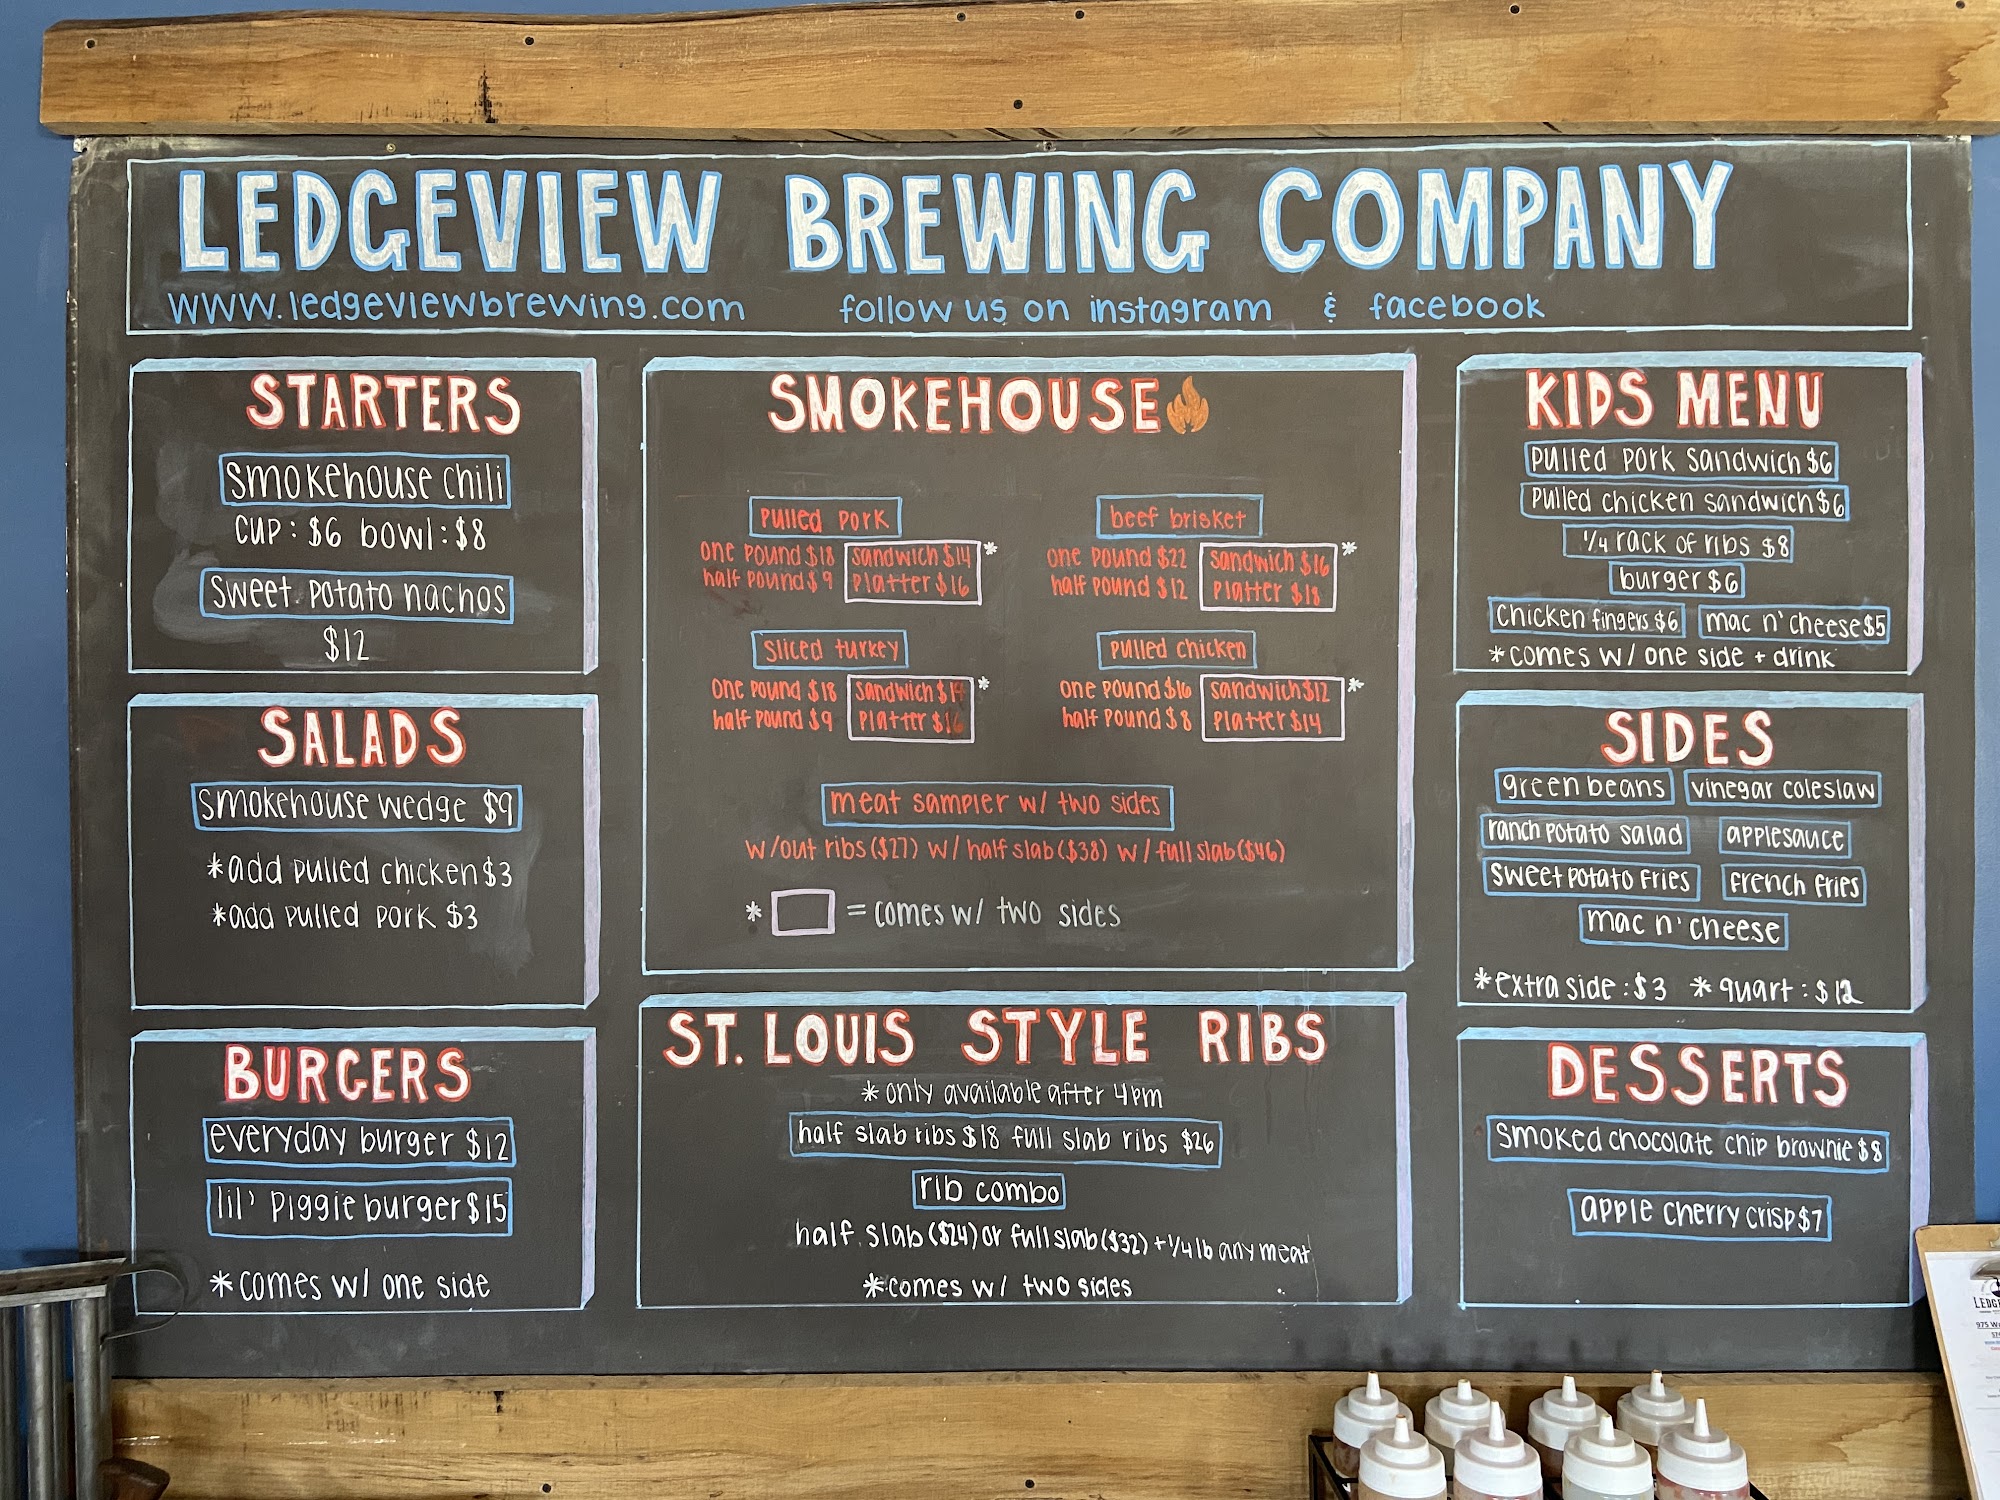 LEDGEVIEW BREWING COMPANY
www.ledgeviewbrewing.com follow us on instagram & facebook
STARTERS
smokehouse chili
cup: $6 bowl: $8
sweet potato nachos
$12
SALADS
smokehouse wedge $9
*add pulled chicken $3
*add pulled pork $3
BURGERS
everyday burger $12
lil' piggie burger $15
*comes w/ one side
SMOKEHOUSE
pulled pork
one pound $18 sandwich $14 *
half pound $9 platter $16
beef brisket
one pound $22 sandwich $16 *
half pound $12 platter $18
sliced turkey
one pound $18 sandwich $14 *
half pound $9 platter $16
pulled chicken
one pound $16 sandwich $12 *
half pound $8 platter $14
meat sampler w/ two sides
w/out ribs ($27) w/ half slab ($38) w/ full slab ($46)
* = comes w/ two sides
ST. LOUIS STYLE RIBS
*only available after 4pm
half slab ribs $18 full slab ribs $26
rib combo
half slab ($24) or full slab ($32) + 1/4 lb any meat
*comes w/ two sides
KIDS MENU
pulled pork sandwich $6
pulled chicken sandwich $6
1/4 rack of ribs $8
burger $6
chicken fingers $6 mac n' cheese $5
*comes w/ one side + drink
SIDES
green beans vinegar coleslaw
ranch potato salad applesauce
sweet potato fries french fries
mac n' cheese
*extra side: $3 *quart: $12
DESSERTS
smoked chocolate chip brownie $8
apple cherry crisp $7